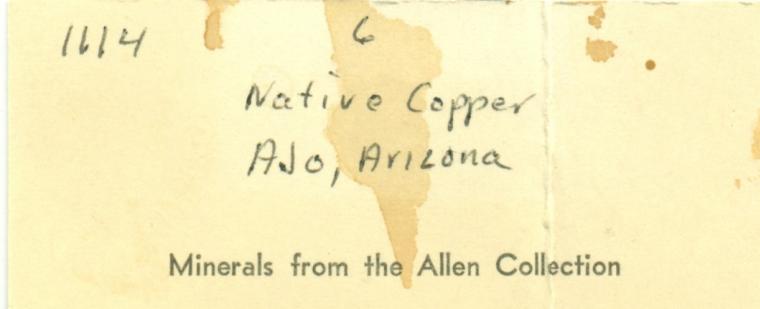 1114 6
Native Copper
AJo, Arizona
Minerals from the Allen Collection